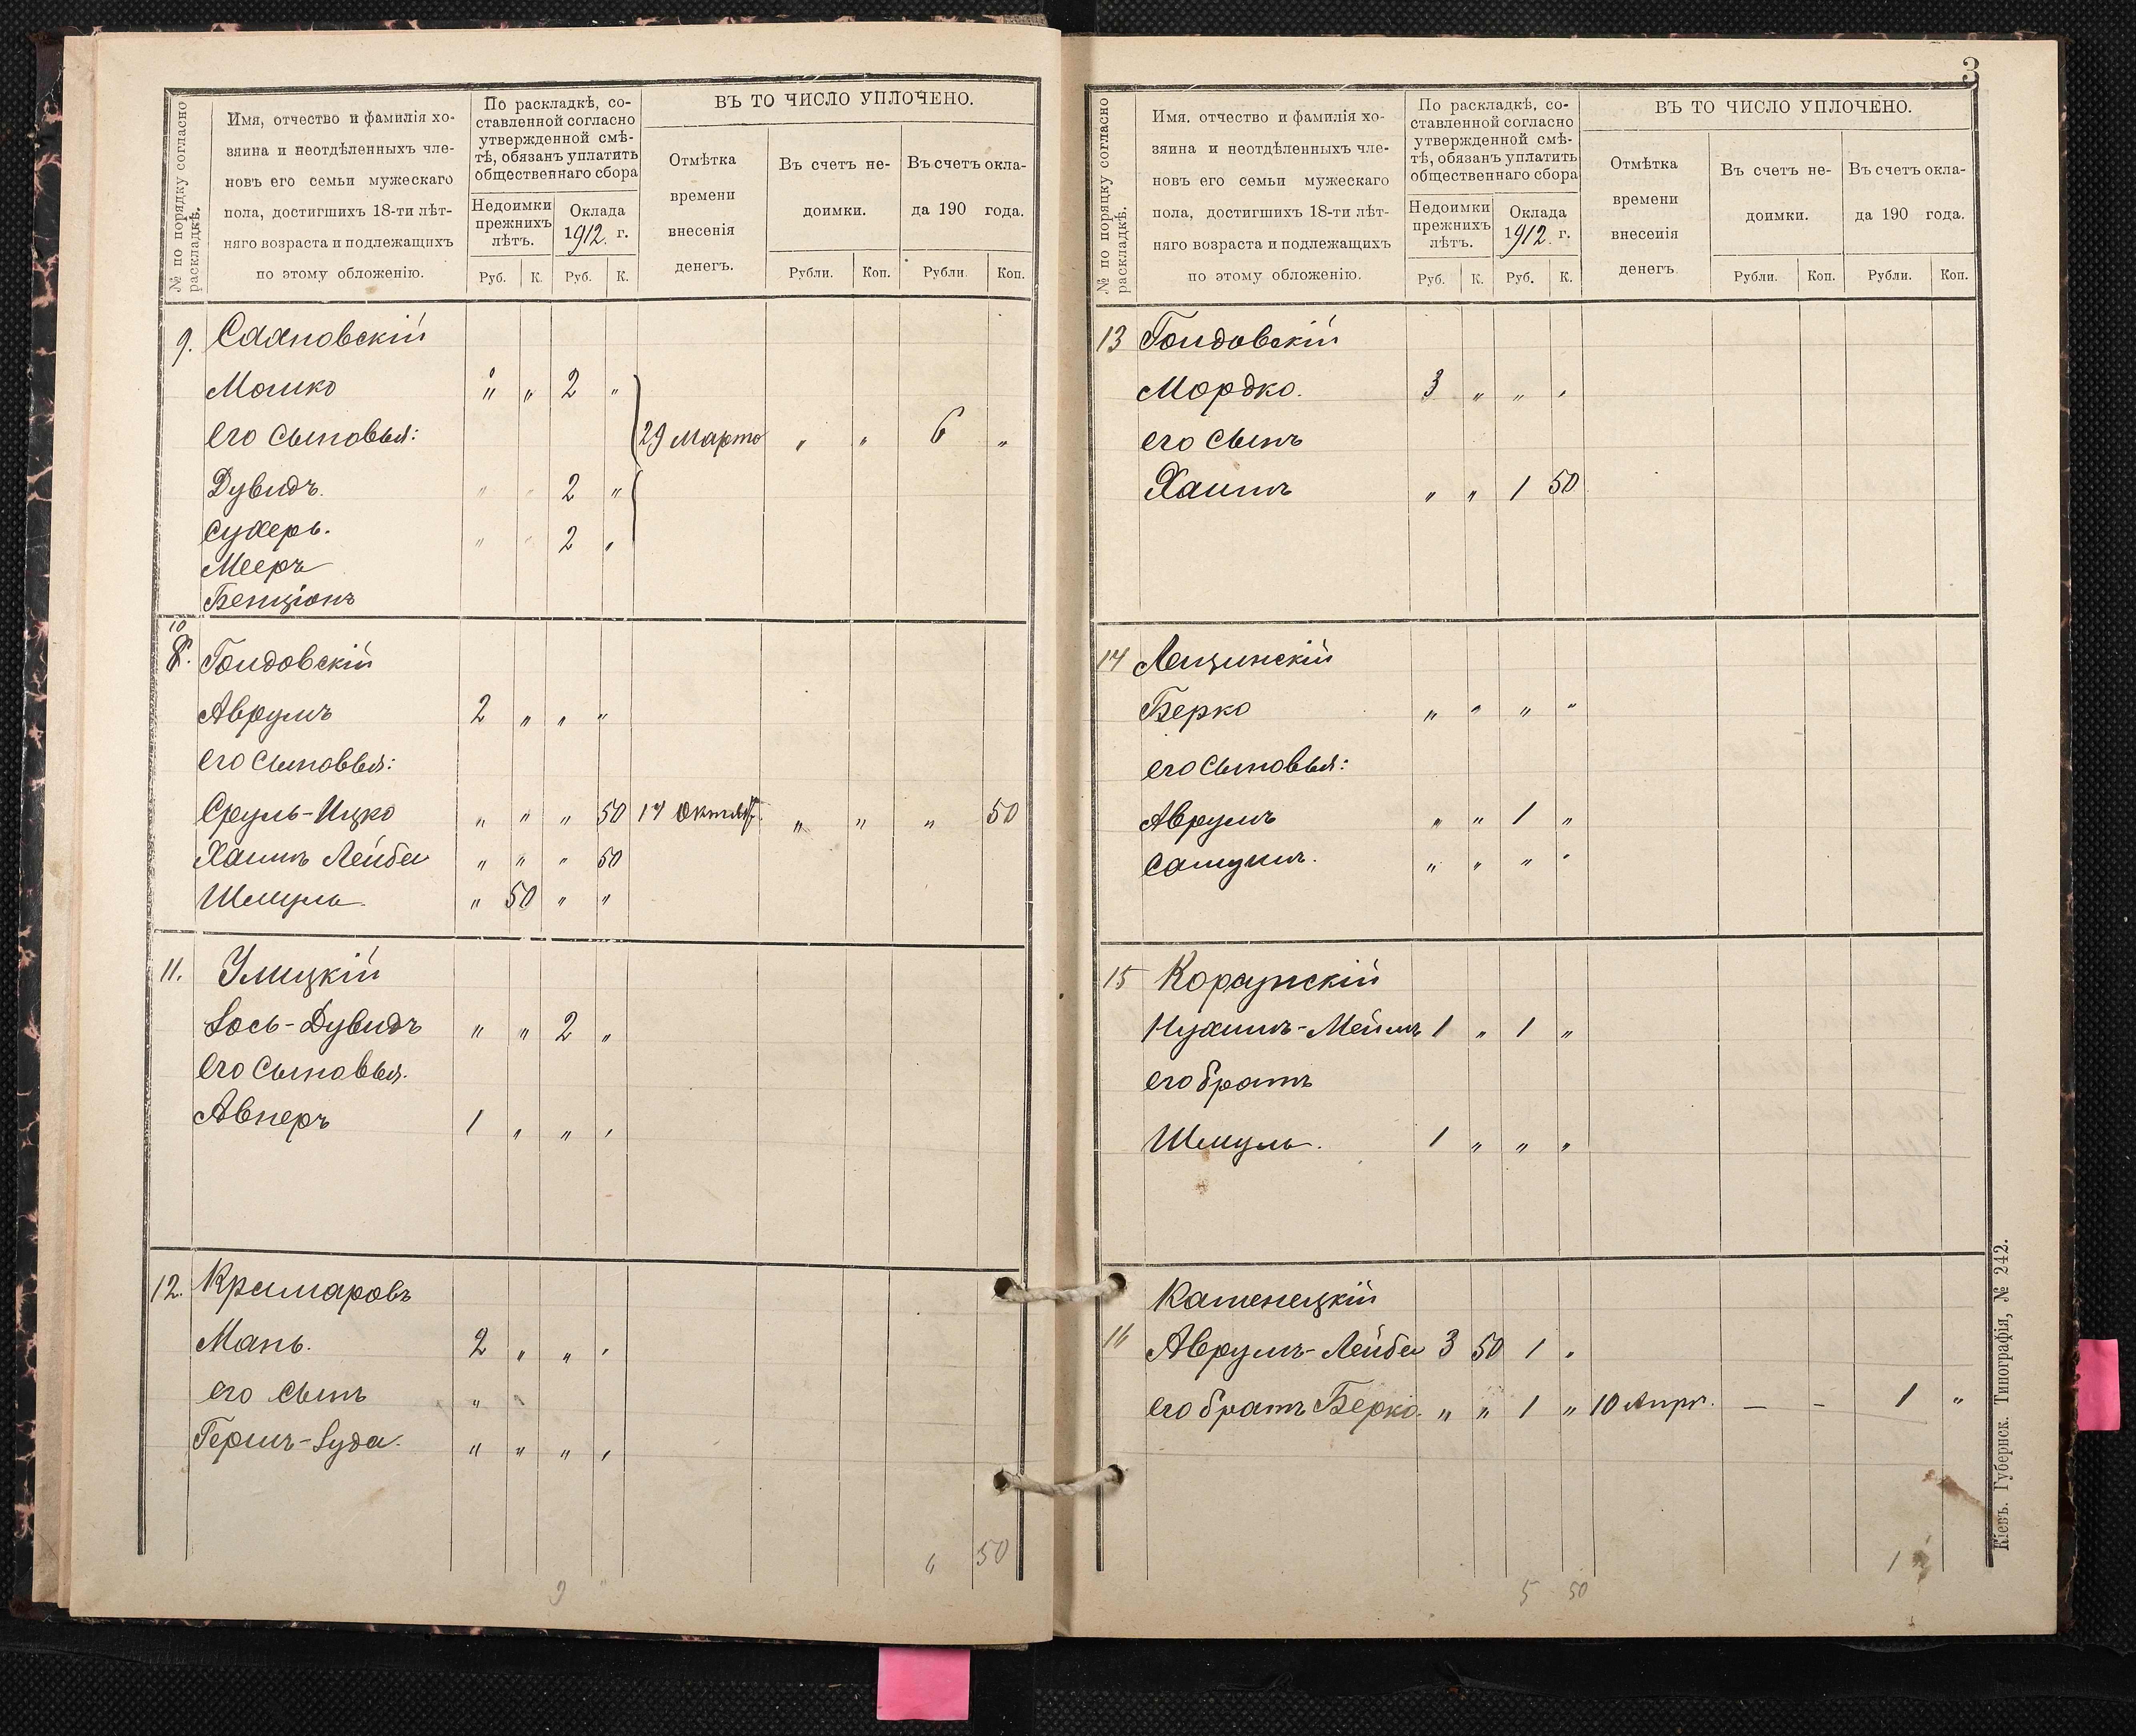 № по порядку согласно раскладкѣ.
Имя, отчество и фамилія хо-
зяина и неотдѣленныхъ чле-
новъ его семьи мужескаго
пола, достигшихъ 18-ти лѣт-
няго возраста и подлежащихъ
по этому обложенію.
По раскладкѣ, со-
ставленной согласно
утвержденной смѣ-
тѣ, обязанъ уплатить
общественнаго сбора
Недоимки
прежнихъ
лѣтъ.
Оклада
1912. г.
Руб. К. Руб. К.
ВЪ ТО ЧИСЛО УПЛОЧЕНО.
Отмѣтка
времени
внесенія
денегъ.
Въ счетъ не-
доимки.
Въ счетъ окла-
да 190 года.
Рубли. Коп. Рубли. Коп.
9.
Мошко " " 2 "
его сыновья: 29 марта " " 6 "
Дувидъ. " " 2 "
Сухеръ. " " 2 "
Мееръ
Бенціонъ
10
8. Гоидовскій
Аврумъ 2 " " "
его сыновья:
Сруль-Ицко " " " 50 17 Октяб. " " " 50
Хаимъ Лейба " " " 50
Шмуль. " 50 " "
11. Улицкій
Іось-Дувидъ " " 2 "
его сыновья.
Авнеръ 1 " " "
12. Крамаровъ
Мань. 2 " " "
его сынъ "
Гершъ-Іуда. " " " "
" 50
9 "
3
№ по порядку согласно раскладкѣ.
Имя, отчество и фамилія хо-
зяина и неотдѣленныхъ чле-
новъ его семьи мужескаго
пола, достигшихъ 18-ти лѣт-
няго возраста и подлежащихъ
по этому обложенію.
По раскладкѣ, со-
ставленной согласно
утвержденной смѣ-
тѣ, обязанъ уплатить
общественнаго сбора
Недоимки
прежнихъ
лѣтъ.
Оклада
1912. г.
Руб. К. Руб. К.
ВЪ ТО ЧИСЛО УПЛОЧЕНО.
Отмѣтка
времени
внесенія
денегъ.
Въ счетъ не-
доимки.
Въ счетъ окла-
да 190 года.
Рубли. Коп. Рубли. Коп.
13 Гоидовскій
Мордко. 3 " " "
его сынъ
Хаимъ " " 1 50
14 Лещинскій
Берко " " " "
его сыновья:
Аврумъ " " 1 "
" " " "
15 Корсунскій
Нухимъ- 1 " 1 "
его братъ
Шмуль. 1 " " "
Каменецкій
16 Аврумъ-Лейба 3 50 1 "
его братъ Берко. " " 1 " 10 Апр. — – 1 "
1
5 50
Кіевъ. Губернск. Типографія, № 242.